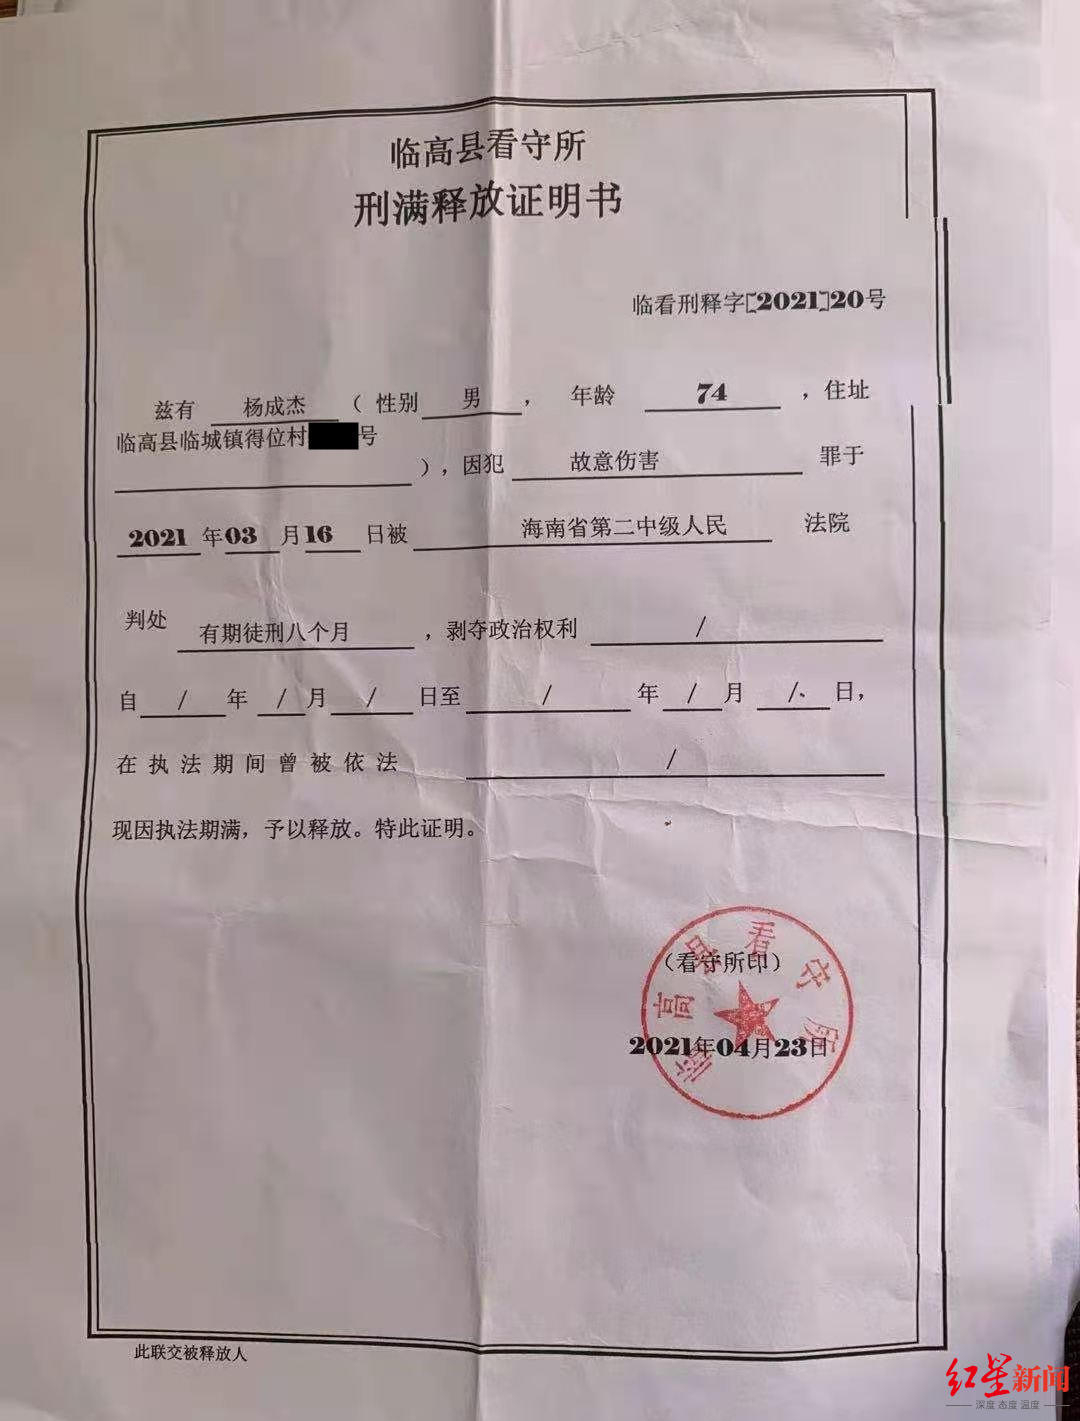 临高县看守所
刑满释放证明书
临看刑释字[2021]20号
兹有 杨成杰 （ 性别 男 ， 年龄 74 ，住址
临高县临城镇得位村 号
），因犯 故意伤害 罪于
2021 年 03 月 16 日被 海南省第二中级人民 法院
判处 有期徒刑八个月 ，剥夺政治权利 /
自 / 年 / 月 / 日至 / 年 / 月 /、 日，
在执法期间曾被依法 /
现因执法期满，予以释放。特此证明。
临高县看守所
（看守所印）
2021年04月23日
此联交被释放人
红星新闻
深度 态度 温度